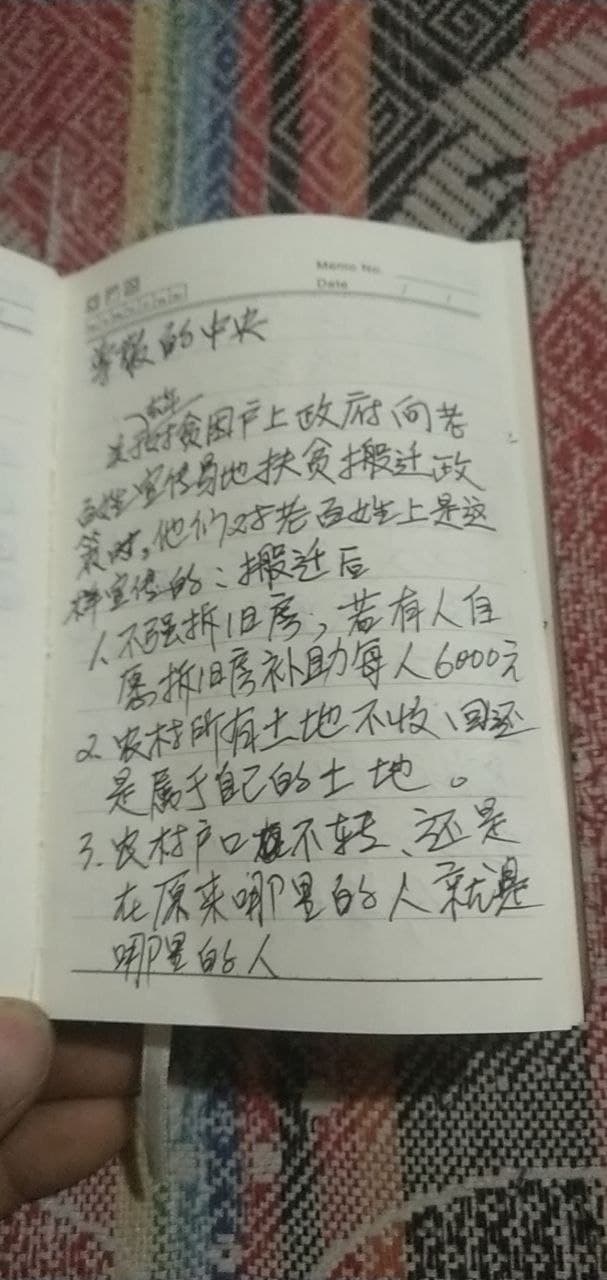 Memo No.
Date / /
尊敬的中央
去年
贫困户上政府向老
百姓宣传易地扶贫搬迁政
策时,他们对老百姓上是这
样宣传的:搬迁后
1、不强拆旧房,若有人自
愿拆旧房补助每人6000元
2、农村所有土地不收回还
是属于自己的土地。
3、农村户口不转、还是
在原来哪里的人就是
哪里的人